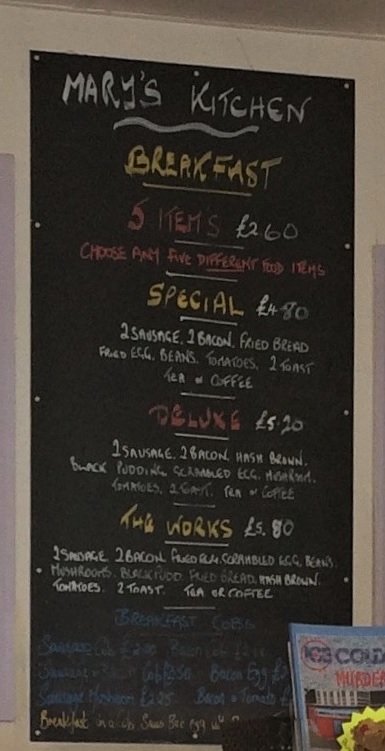 MARY'S KITCHEN
BREAKFAST
5 ITEMS £2 60
CHOOSE ANY FIVE DIFFERENT FOOD ITEMS
SPECIAL £4 80
2 SAUSAGE, 2 BACON, FRIED BREAD
FRIED EGG, BEANS, TOMATOES, 2 TOAST
TEA or COFFEE
DELUXE £5.20
2 SAUSAGE, 2 BACON, HASH BROWN,
BLACK PUDDING, SCRAMBLED EGG, MUSHROOM,
TOMATOES, 2 TOAST, TEA or COFFEE
THE WORKS £5.80
2 SAUSAGE, 2 BACON, FRIED EGG, SCRAMBLED EGG, BEANS,
MUSHROOMS, BLACK PUDD, FRIED BREAD, HASH BROWN,
TOMATOES, 2 TOAST, TEA OR COFFEE
BREAKFAST COBS
Sausage Cob £2.00 Bacon Cob
Sausage Bacon Cob £2.50 Bacon Egg
Sausage Mushroom £2.25 Bacon Tomato
Breakfast in a cob Saus Bac egg
ICE COLD
MURDER